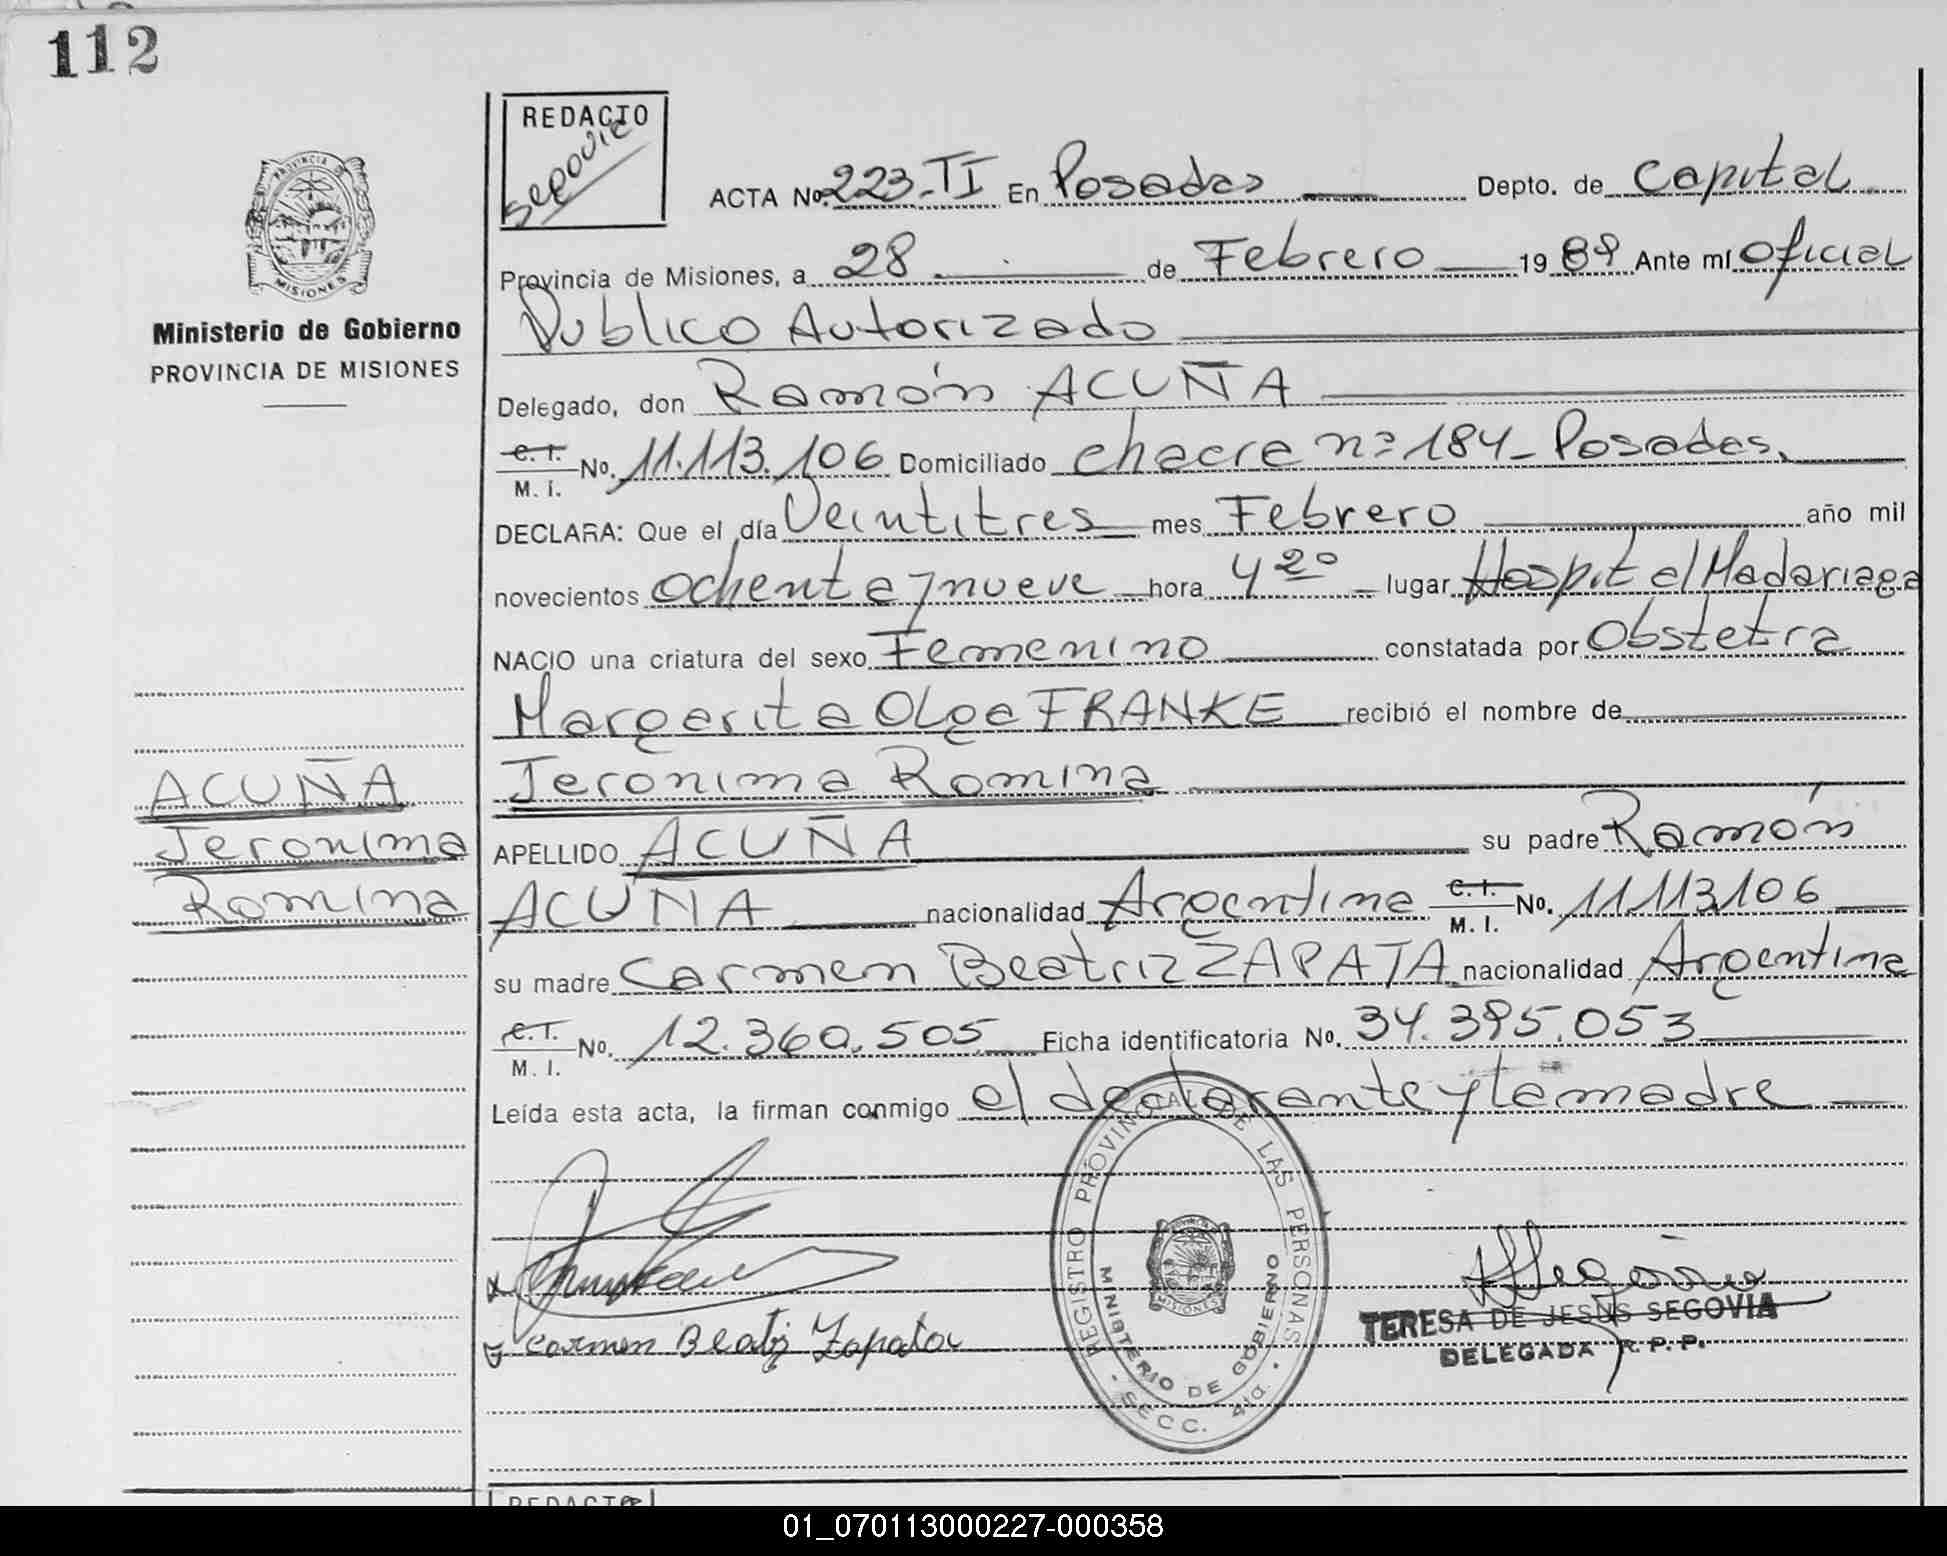 112
REDACTO
Segovia
ACTA No. 223-TI En Posadas Depto. de Capital
Provincia de Misiones, a 28 de Febrero 1989 Ante mí Oficial
Publico Autorizado
Delegado, don Ramón ACUÑA
C. I. M. I. No. 11.113.106 Domiciliado chacra nº 184 - Posadas.
DECLARA: Que el día Veintitres mes Febrero año mil
novecientos ochenta y nueve hora 4 20 lugar Hospital Madariaga
NACIO una criatura del sexo Femenino constatada por Obstetra
Margarita Olga FRANKE recibió el nombre de
Jeronima Romina
APELLIDO ACUÑA su padre Ramón
ACUÑA nacionalidad Argentina C. I. M. I. No. 11.113.106
su madre Carmen Beatriz ZAPATA nacionalidad Argentina
C. I. M. I. No. 12.360.505 Ficha identificatoria No. 34.395.053
Leída esta acta, la firman conmigo el declarante y la madre
Carmen Beatriz Zapata
REGISTRO PROVINCIAL DE LAS PERSONAS
MINISTERIO DE GOBIERNO
SECC. 4ta.
PROVINCIA DE MISIONES
TERESA DE JESUS SEGOVIA
DELEGADA R.P.P.
PROVINCIA DE MISIONES
Ministerio de Gobierno
PROVINCIA DE MISIONES
ACUÑA
Jeronima
Romina
REDACTO
01_070113000227-000358